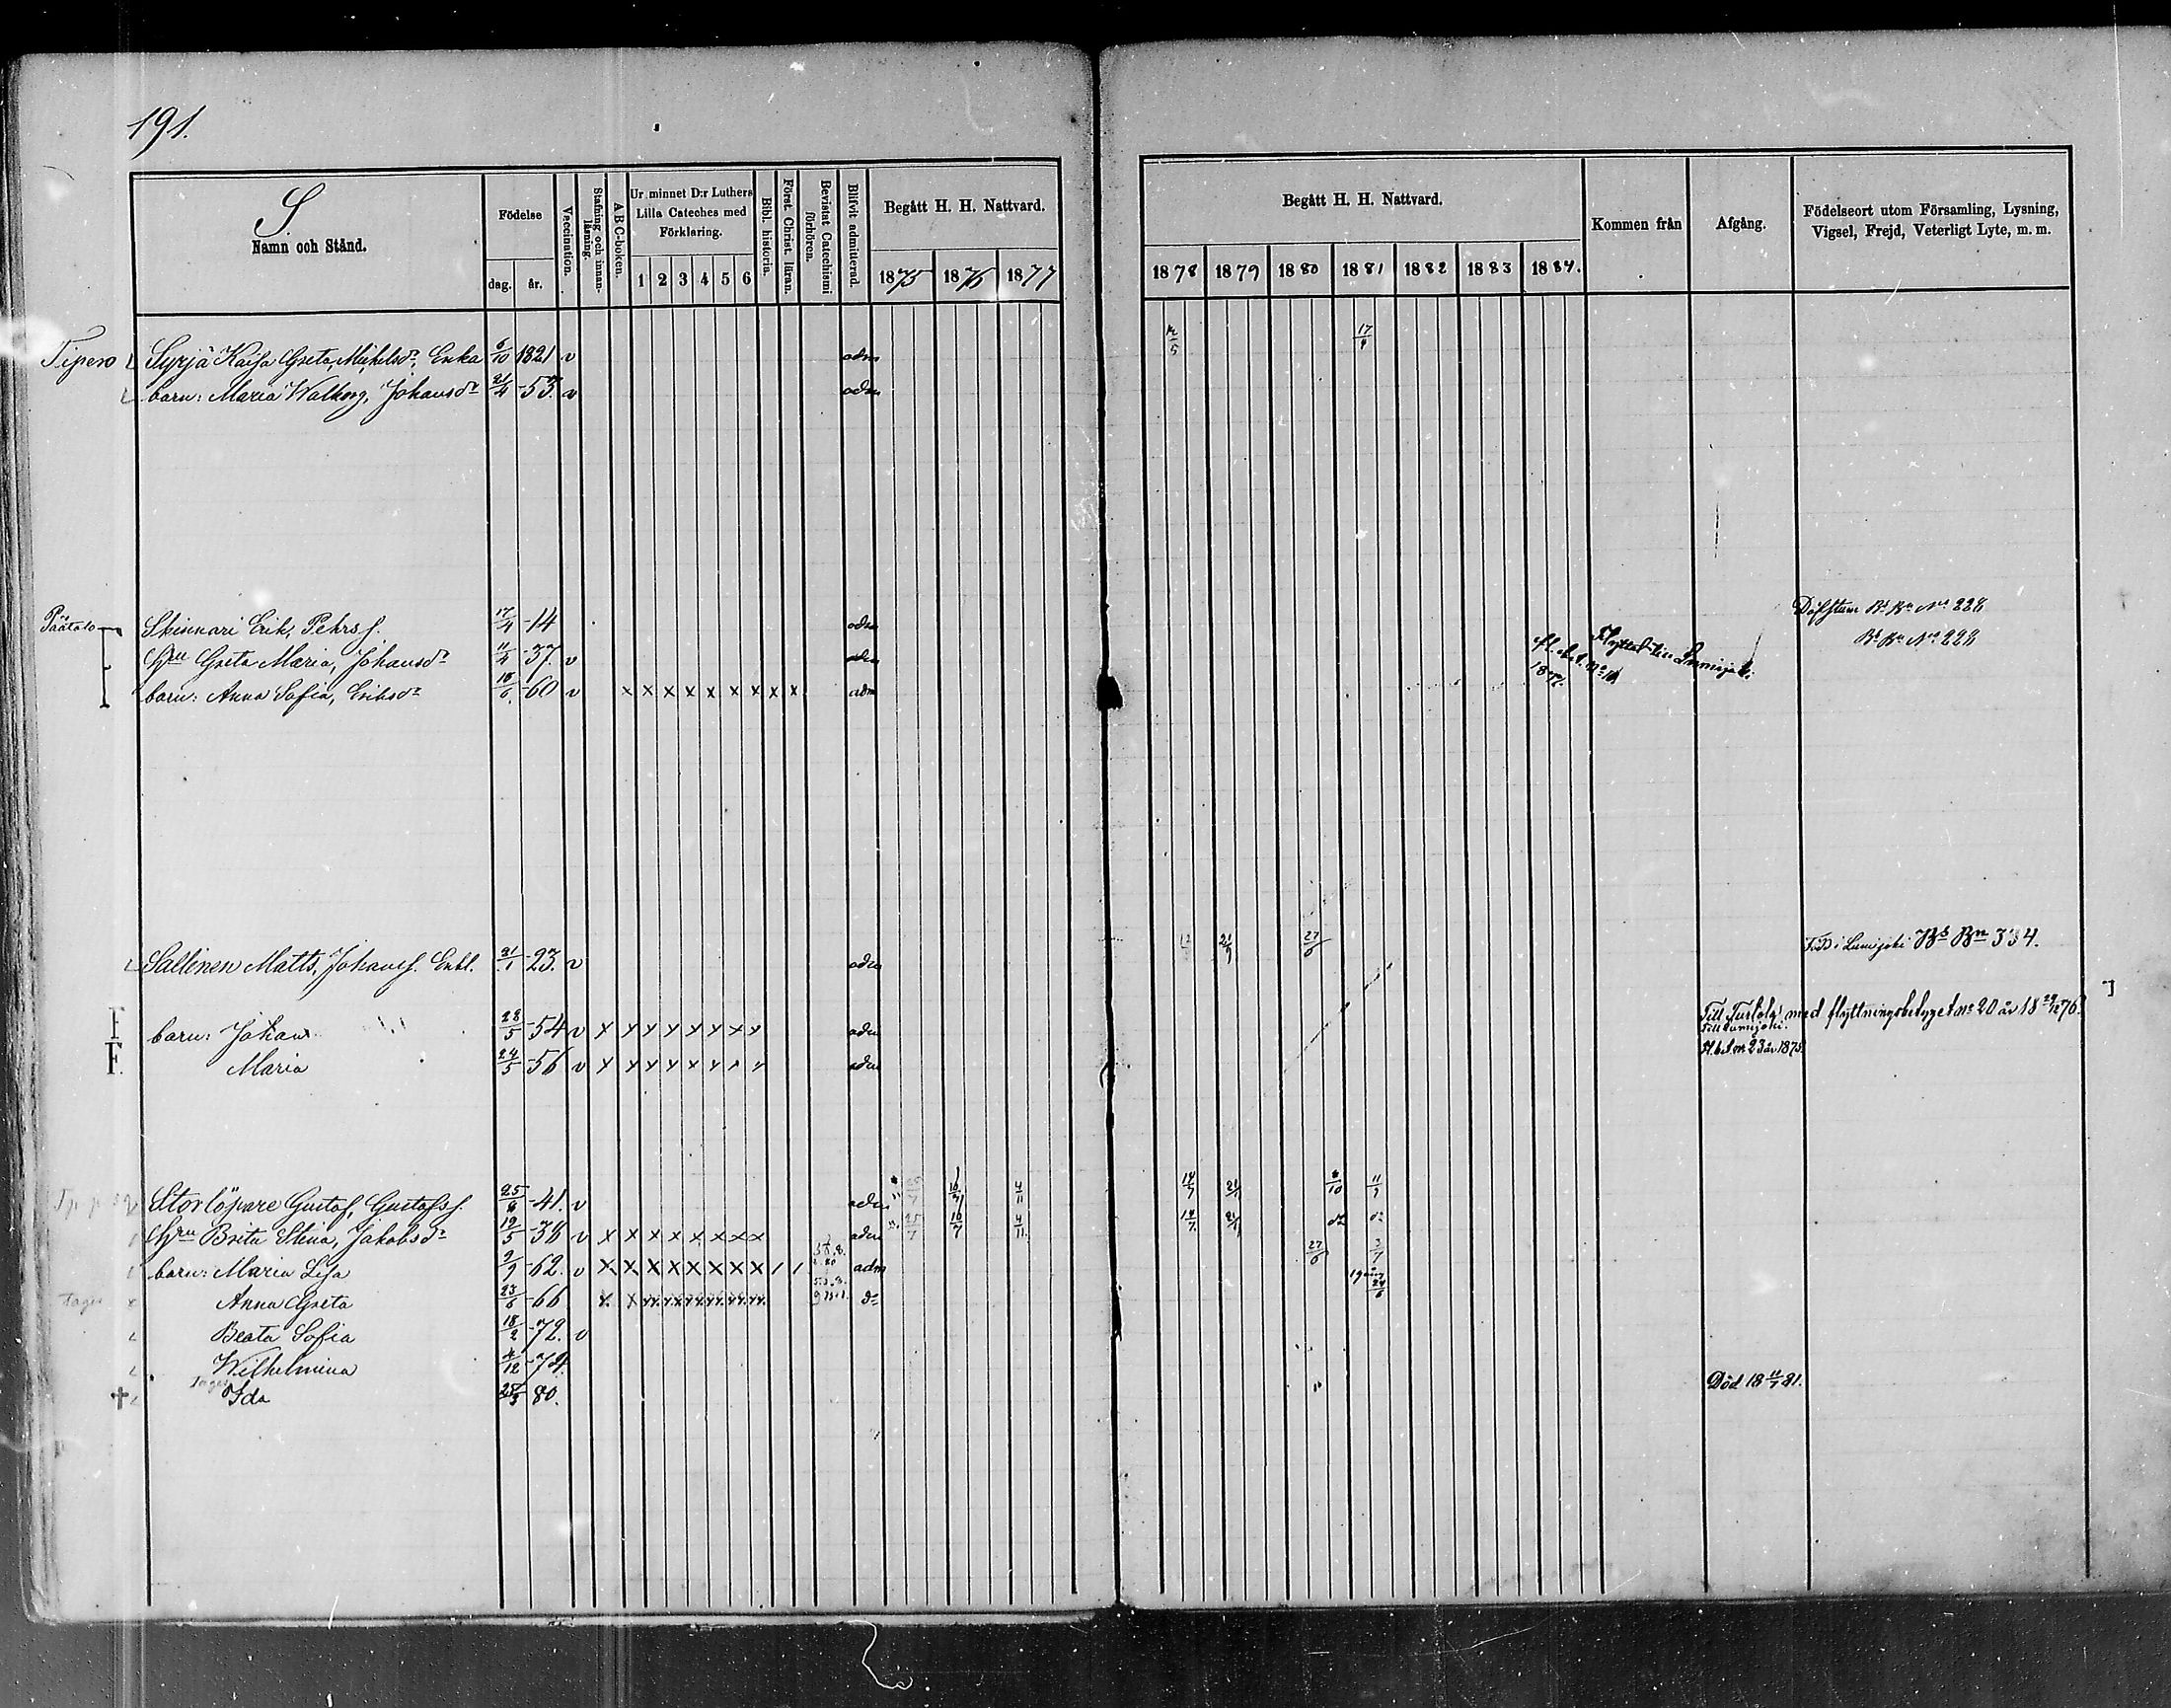 191.
S.
Namn och Stånd.
Födelse
dag. år.
Vaccination.
Stafning och innan-läsning.
A-B-C-boken.
Ur minnet D:r Luthers
Lilla Cateches med
Förklaring.
1 2 3 4 5 6
Bibl. historia.
Först. Christ. läran.
Bevistat Catechismi förhören.
Blifvit admitterad.
Begått H. H. Nattvard.
1875 1876 1877
Begått H. H. Nattvard.
1878 1879 1880 1881 1882 1883 1884.
Kommen från
Afgång.
Födelseort utom Församling, Lysning,
Vigsel, Frejd, Veterligt Lyte, m. m.
Tipero Syrjä Kaisa Greta, Michelsdr, Enka 6/10 1821 v adm 17/9
barn: Maria Walborg, Johansdr 21/4 -53. v adm
Päätalo Skinnari Erik, Pehrss. 17/4 -14 adm Döfstum Bd Bn No 228
Hru Greta Maria, Johansdr 11/4 -37. v adm Bd Bn No 228
barn: Anna Sofia, Eriksdr 18/6 -60 v x x x x x x x x x adm 1877.
Sallinen Matts, Johanss. Enkl. 21/1 -23. v adm 21/9 27/6 Född i Lumijoki Bd Bn 334.
barn: Johan 28/5 -54 v x x x x x x x x adm Till Turtola med flyttningsbetyget no 20 år 18 29/12 76.
Till Lumijoki.
Maria 24/5 -56 v x x x x x x x x adm fl. bet. no 23 år 1875.
Storlöpare Gustaf, Gustafss. 25/8 -41. v adm 16/7 4/11 14/7 21/9 /10 11/9
Hru Brita Stina, Jakobsdr 19/5 -38 v x x x x x x x x adm 25/7 16/7 4/11 14/7 21/9 do do
barn: Maria Lisa 9/9 -62. v x x x x x x x x / / adm 27/6 3/7
Anna Greta 23/6 -66 do 24/6
Beata Sofia 18/2 -72. v
Wilhelmina 4/12 -74.
Ida 25/3 80. Död 18 11/7 81.